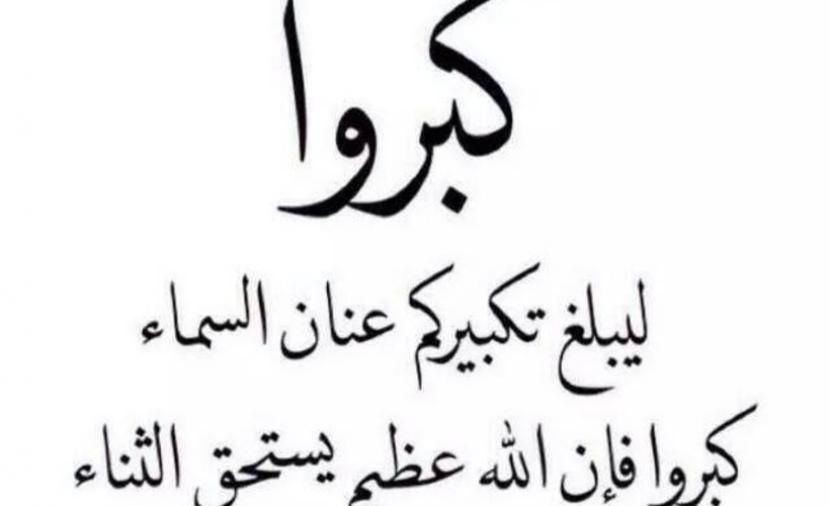 كبروا
ليبلغ تكبيركم عنان السماء
كبروا فإن الله عظيم يستحق الثناء